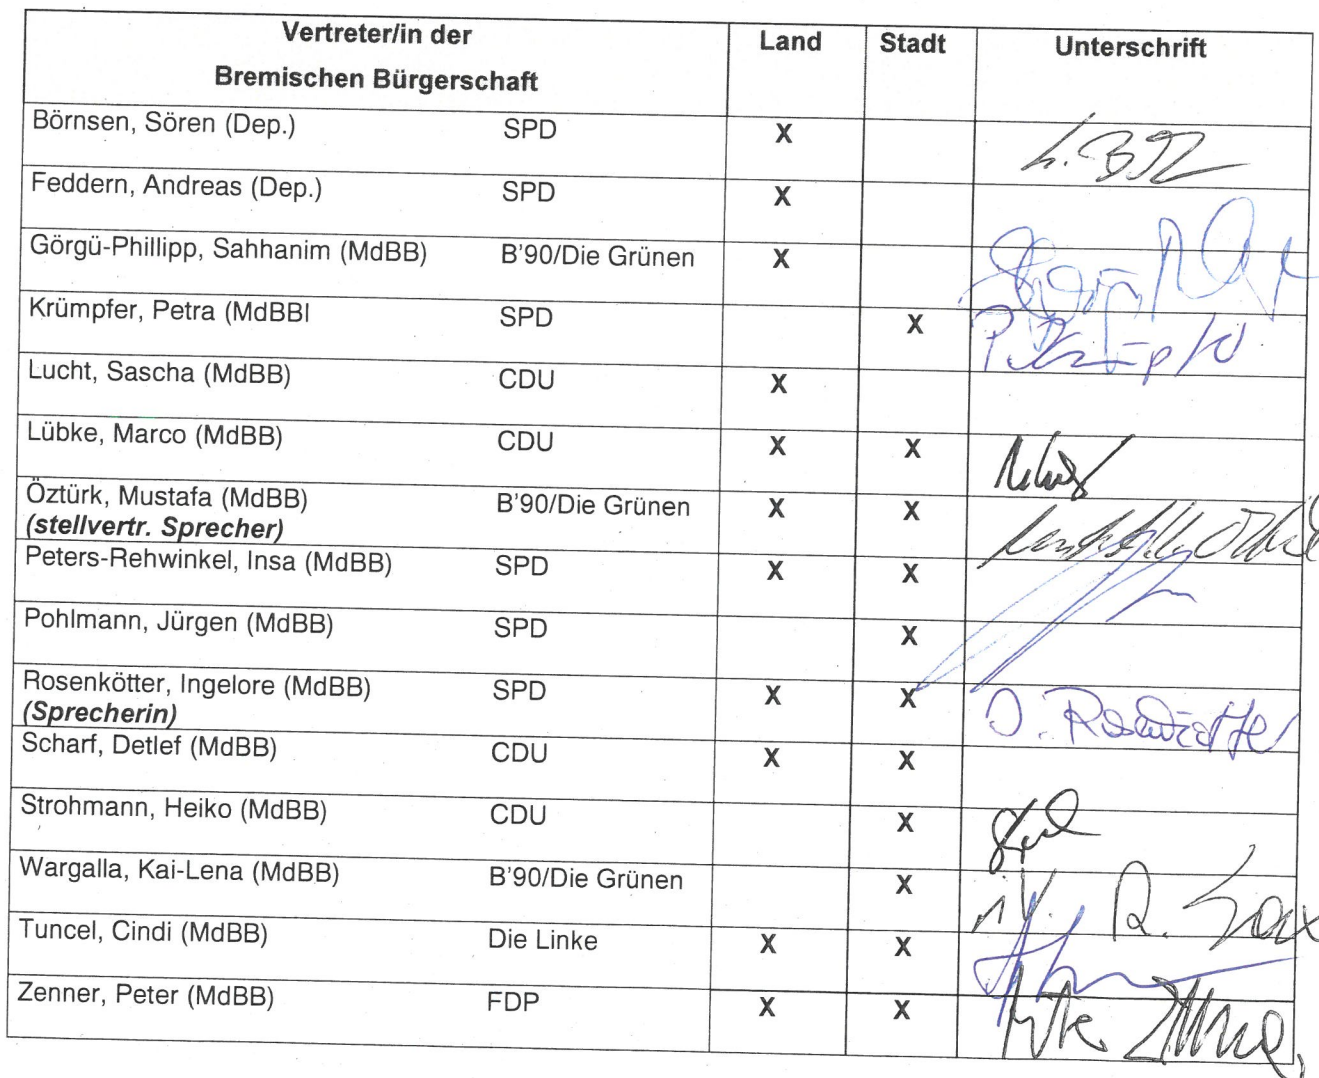 Vertreter/in der Land Stadt Unterschrift
Bremischen Bürgerschaft
Börnsen, Sören (Dep.) SPD X
Feddern, Andreas (Dep.) SPD X
Görgü-Phillipp, Sahhanim (MdBB) B'90/Die Grünen X
Krümpfer, Petra (MdBBI SPD X
Lucht, Sascha (MdBB) CDU X
Lübke, Marco (MdBB) CDU X X
Öztürk, Mustafa (MdBB) B'90/Die Grünen X X
(stellvertr. Sprecher)
Peters-Rehwinkel, Insa (MdBB) SPD X X
Pohlmann, Jürgen (MdBB) SPD X
Rosenkötter, Ingelore (MdBB) SPD X X
(Sprecherin)
Scharf, Detlef (MdBB) CDU X X
Strohmann, Heiko (MdBB) CDU X
Wargalla, Kai-Lena (MdBB) B'90/Die Grünen X
Tuncel, Cindi (MdBB) Die Linke X X
Zenner, Peter (MdBB) FDP X X